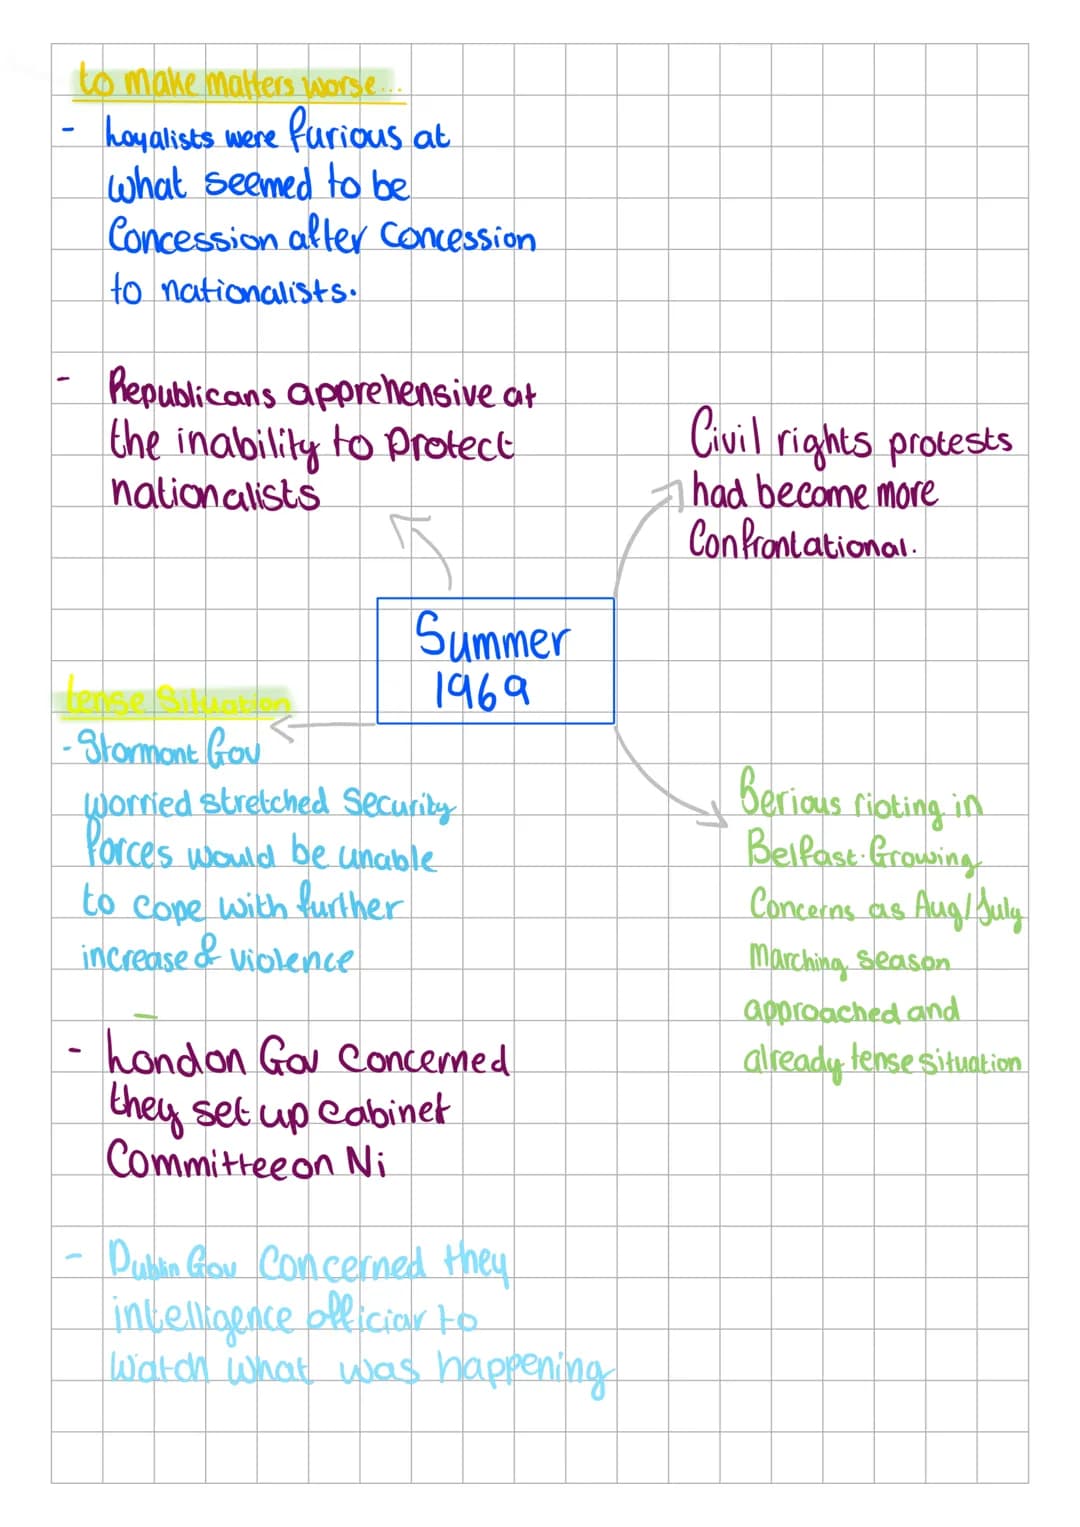 to make matters worse...
- Loyalists were furious at
what seemed to be
Concession after concession
to nationalists.
- Republicans apprehensive at
the inability to protect
nationalists
Civil rights protests
had become more
Confrontational.
Summer
1969
tense Situation
- Stormont Gov
worried stretched Security
forces would be unable
to cope with further
increase of violence
-
- London Gov Concerned
they set up cabinet
Committee on Ni
- Dublin Gov Concerned they
intelligence officiar to
watch what was happening
Serious rioting in
Belfast. Growing
Concerns as Aug/July
Marching season
approached and
already tense situation